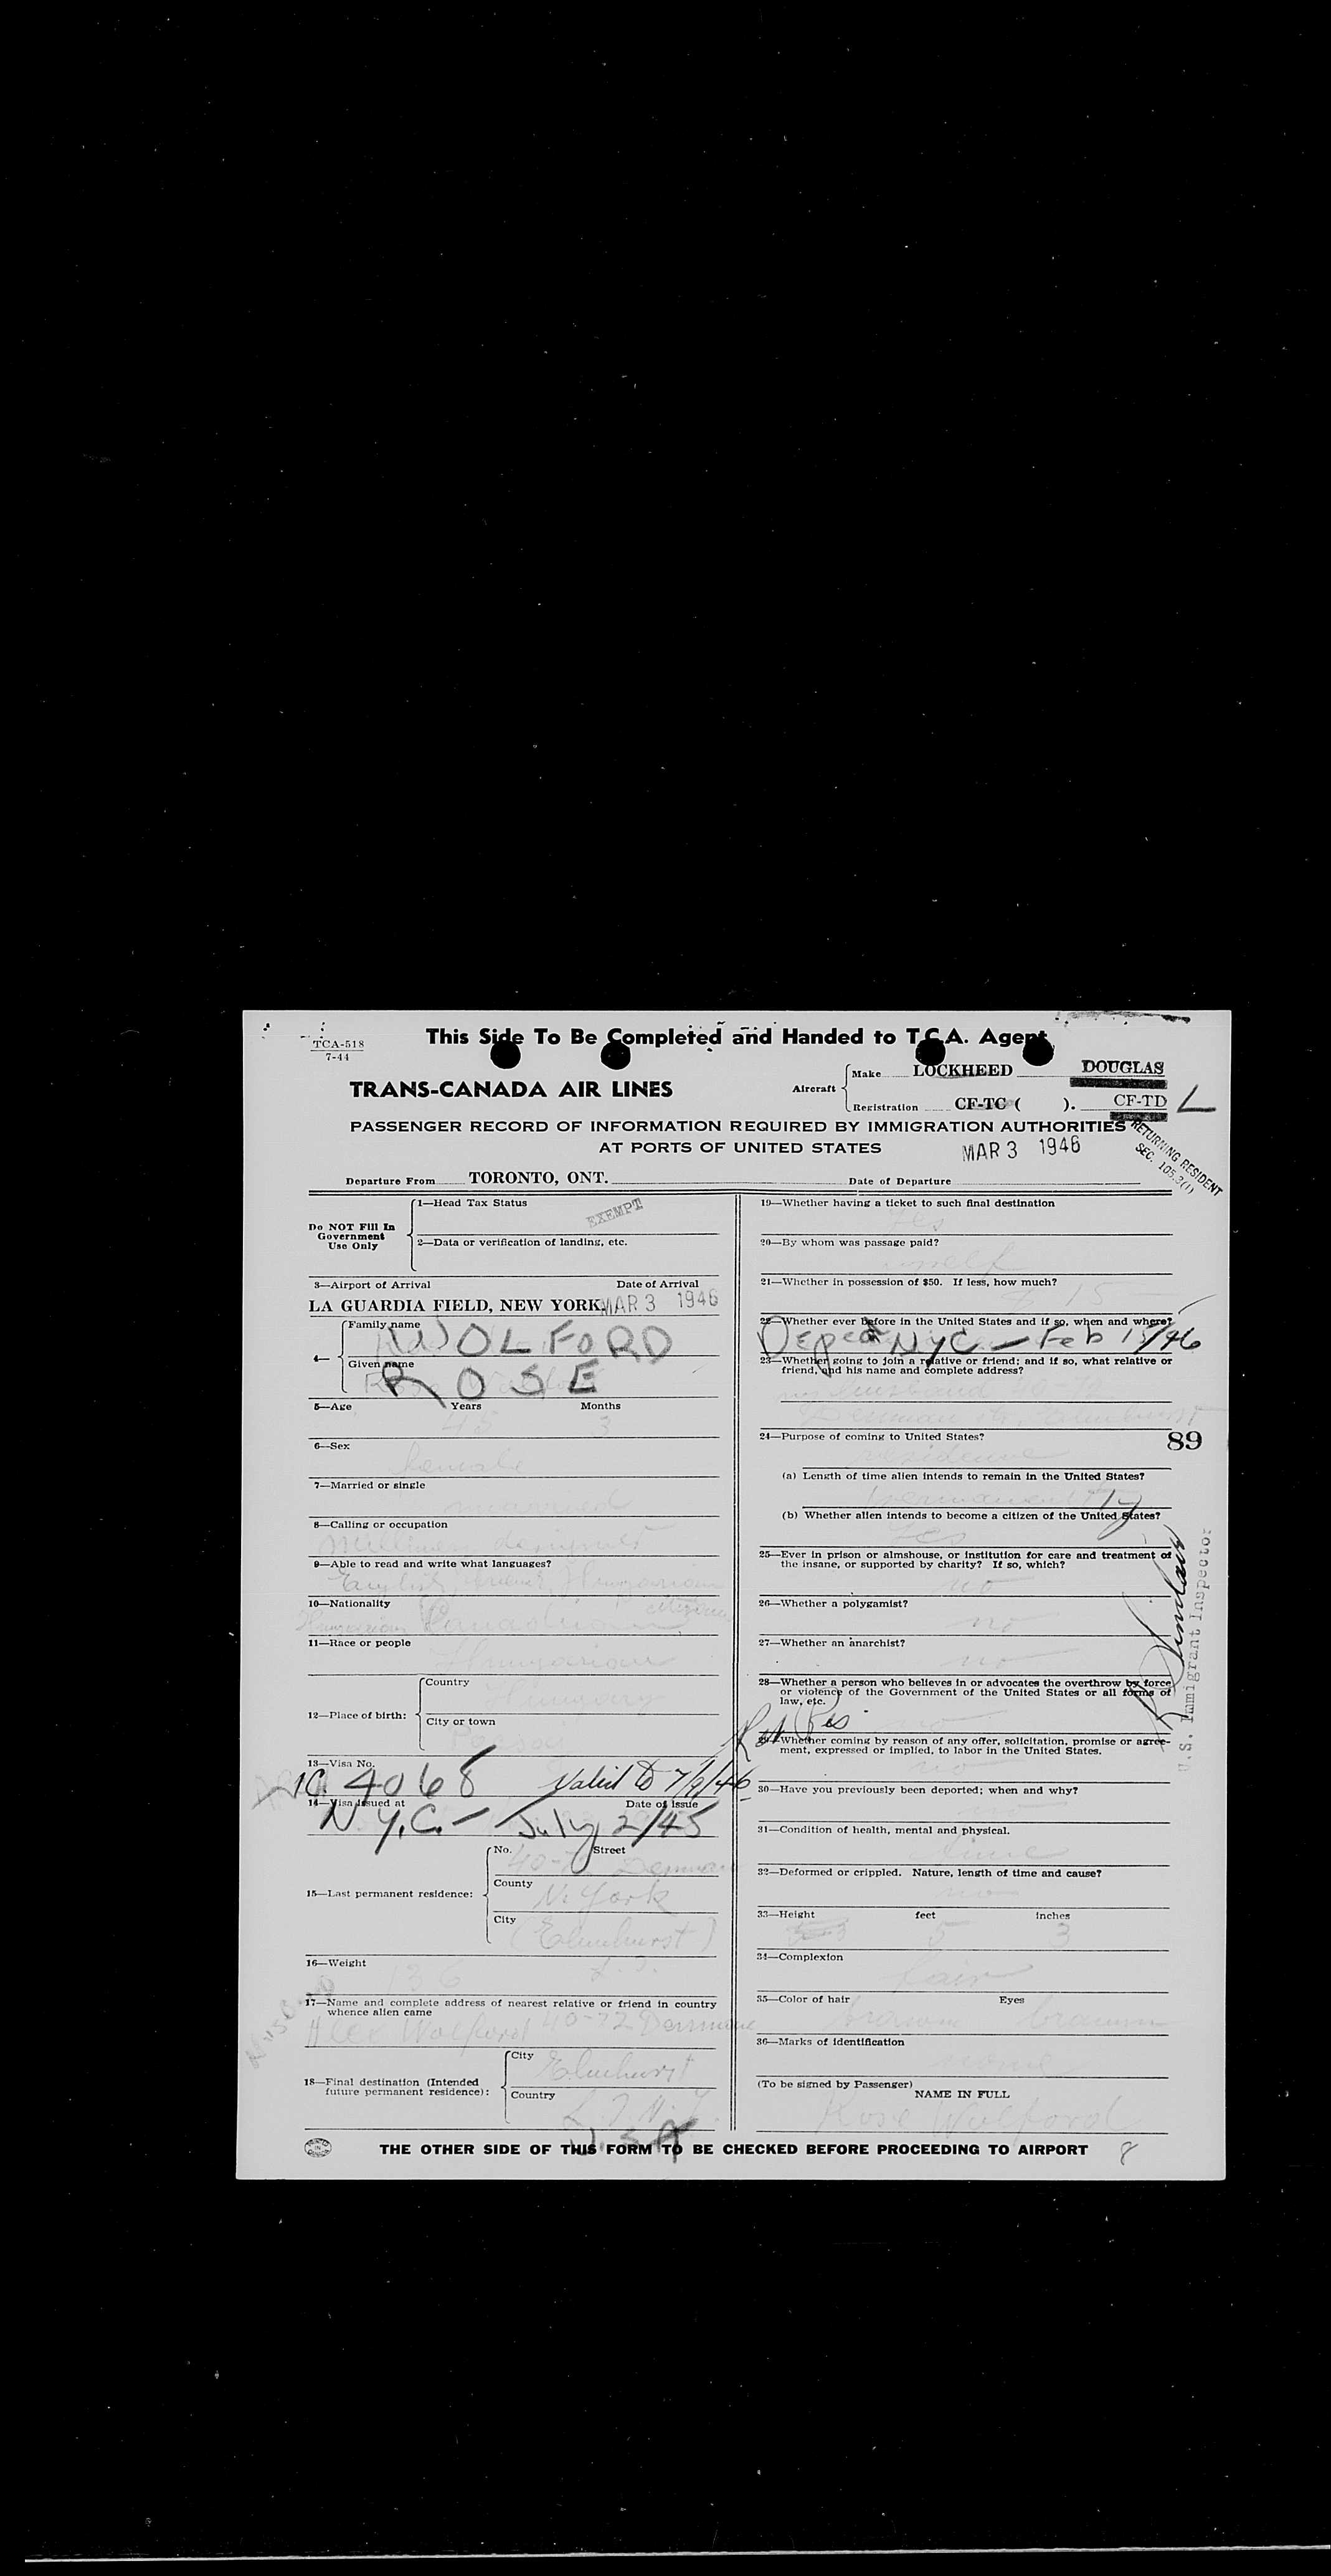 This Side To Be Completed and Handed to T.C.A. Agent
TCA-518
7-44
TRANS-CANADA AIR LINES
Aircraft
Make LOCKHEED DOUGLAS
Registration CF-TC ( ). CF-TD L
PASSENGER RECORD OF INFORMATION REQUIRED BY IMMIGRATION AUTHORITIES
AT PORTS OF UNITED STATES
MAR 3 1946
RETURNING RESIDENT
SEC. 105.3(1)
Departure From TORONTO, ONT. Date of Departure
Do NOT Fill In
Government
Use Only
1—Head Tax Status
EXEMPT
2—Data or verification of landing, etc.
3—Airport of Arrival Date of Arrival
LA GUARDIA FIELD, NEW YORK MAR 3 1946
4—
Family name
WOLFORD
Given name
ROSE
5—Age Years Months
45 3
6—Sex
female
7—Married or single
married
8—Calling or occupation
designer
9—Able to read and write what languages?
English Hungarian
10—Nationality
Hungarian Canadian citizen
11—Race or people
Hungarian
12—Place of birth:
Country
Hungary
City or town
13—Visa No.
4068 Valid to 7/9/46
14—Visa issued at Date of Issue
N.Y.C. - July 2/45
15—Last permanent residence:
No. Street
County
N. York
City
(Elmhurst)
L.I.
16—Weight
136
17—Name and complete address of nearest relative or friend in country
whence alien came
Alex Wolford 40-72 Denman
18—Final destination (Intended
future permanent residence):
City
Elmhurst
Country
L.I. N.Y.
U.S.A
19—Whether having a ticket to such final destination
yes
20—By whom was passage paid?
myself
21—Whether in possession of $50. If less, how much?
$ 15
22—Whether ever before in the United States and if so, when and where?
Deped NYC - Feb 15/46
23—Whether going to join a relative or friend; and if so, what relative or
friend, and his name and complete address?
my husband
Denman St. Elmhurst
89
24—Purpose of coming to United States?
residence
(a) Length of time alien intends to remain in the United States?
permanently
(b) Whether alien intends to become a citizen of the United States?
yes
25—Ever in prison or almshouse, or institution for care and treatment of
the insane, or supported by charity? If so, which?
no
26—Whether a polygamist?
no
27—Whether an anarchist?
no
28—Whether a person who believes in or advocates the overthrow by force
or violence of the Government of the United States or all forms of
law, etc.
no
Ret Res
29—Whether coming by reason of any offer, solicitation, promise or agree-
ment, expressed or implied, to labor in the United States.
no
30—Have you previously been deported; when and why?
no
31—Condition of health, mental and physical.
fine
32—Deformed or crippled. Nature, length of time and cause?
no
33—Height feet inches
5 3
34—Complexion
fair
35—Color of hair Eyes
brown brown
36—Marks of identification
none
(To be signed by Passenger)
NAME IN FULL
Rose Wolford
U.S. Immigrant Inspector
THE OTHER SIDE OF THIS FORM TO BE CHECKED BEFORE PROCEEDING TO AIRPORT
8